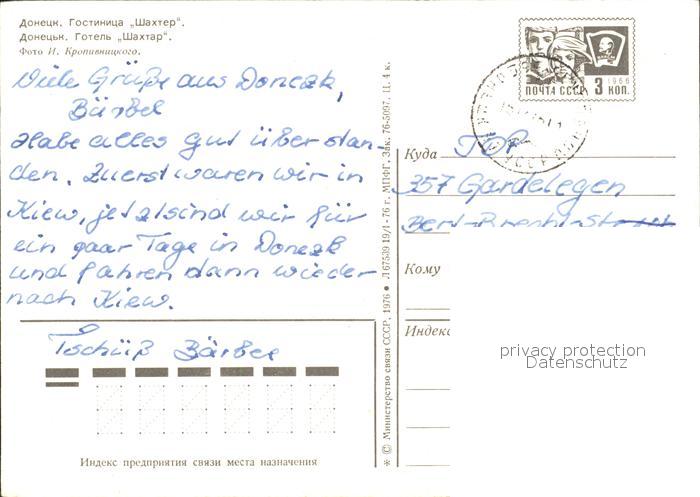 Донецк. Гостиница „Шахтер".
Донецьк. Готель „Шахтар".
Фото И. Кропивницкого.
Viele Grüße aus Donezk,
Bärbel
Habe alles gut überstan-
den. Zuerst waren wir in
Kiew, jetzt sind wir für
ein paar Tage in Donezk
und fahren dann wieder
nach Kiew.
Tschüß Bärbel
Индекс предприятия связи места назначения
* © Министерство связи СССР, 1976 • Л 67539 19/I-76 г. МПФГ. Зак. 76-5097. Ц. 4 к.
1966
ПОЧТА СССР 3 КОП.
Куда
357 Gardelegen
Кому
Индекс
privacy protection
Datenschutz